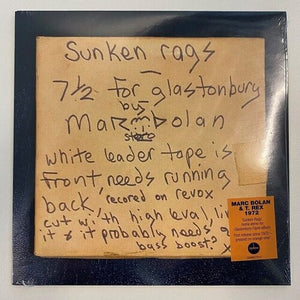 Sunken rags
7½ for glastonbury
by
Marc Bolan
stereo
white leader tape is
front needs running
back, recored on revox
cut with high level, lim
it & it probably needs
bass boost?
MARC BOLAN
& T. REX
1972
'Sunken Rags'